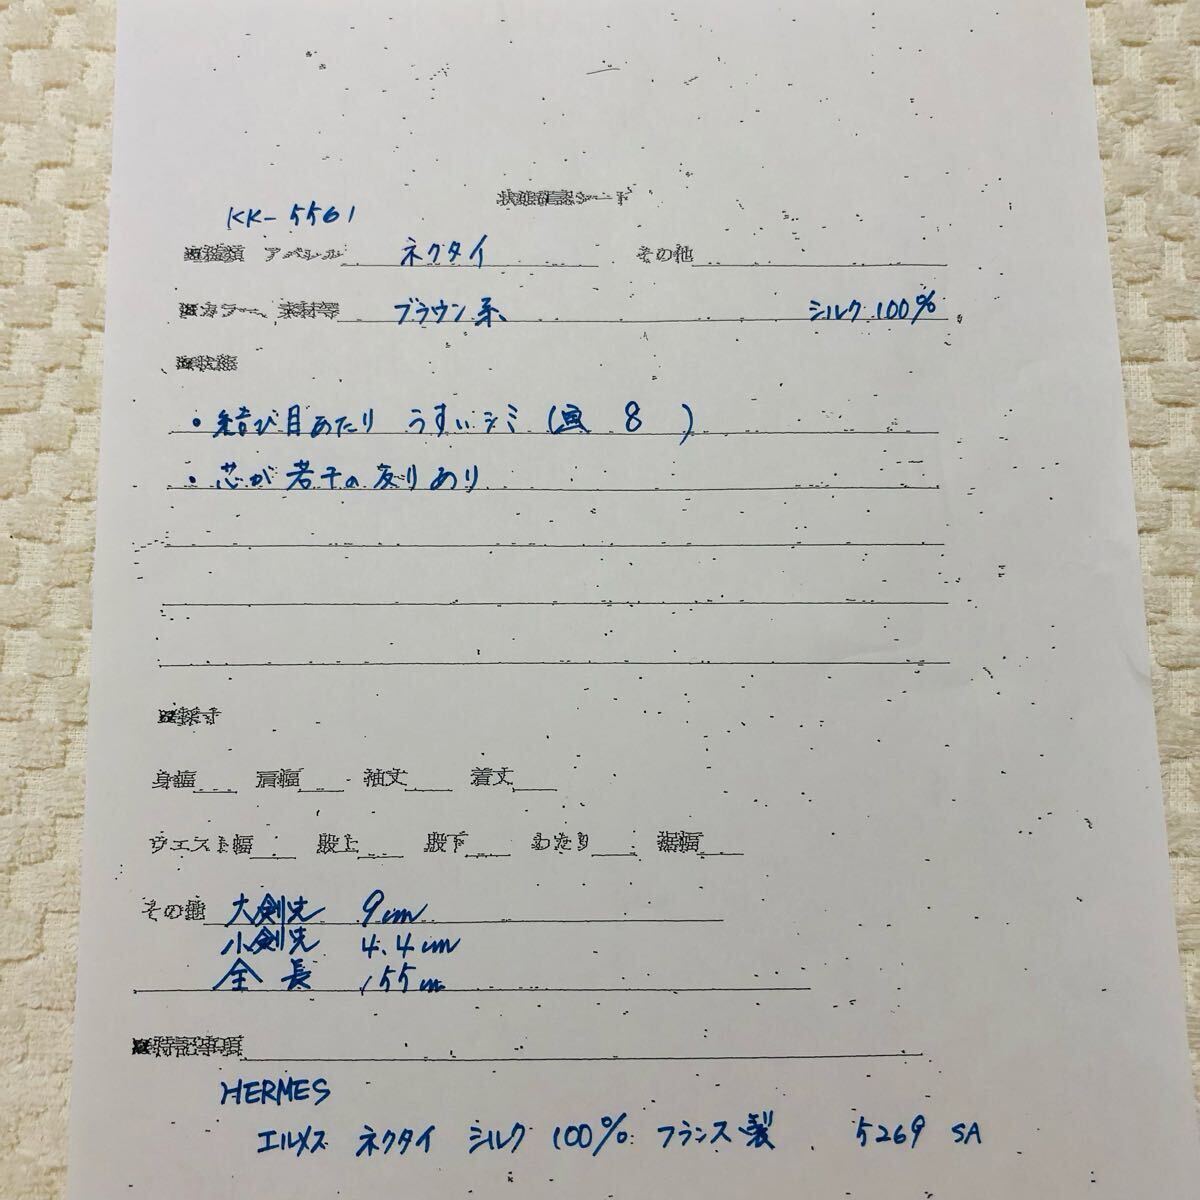 状態確認シート
KK-5561
■種類 アパレル ネクタイ その他
■カラー、素材等 ブラウン系 シルク 100%
■状態
・結び目あたり うすいシミ (画 8 )
・芯が若干の反りあり
■採寸
身幅 肩幅 袖丈 着丈
ウエスト幅 股上 股下 わたり 裾幅
その他 大剣先 9cm
小剣先 4.4cm
全長 155cm
■特記事項
HERMES
エルメス ネクタイ シルク 100% フランス製 5269 SA